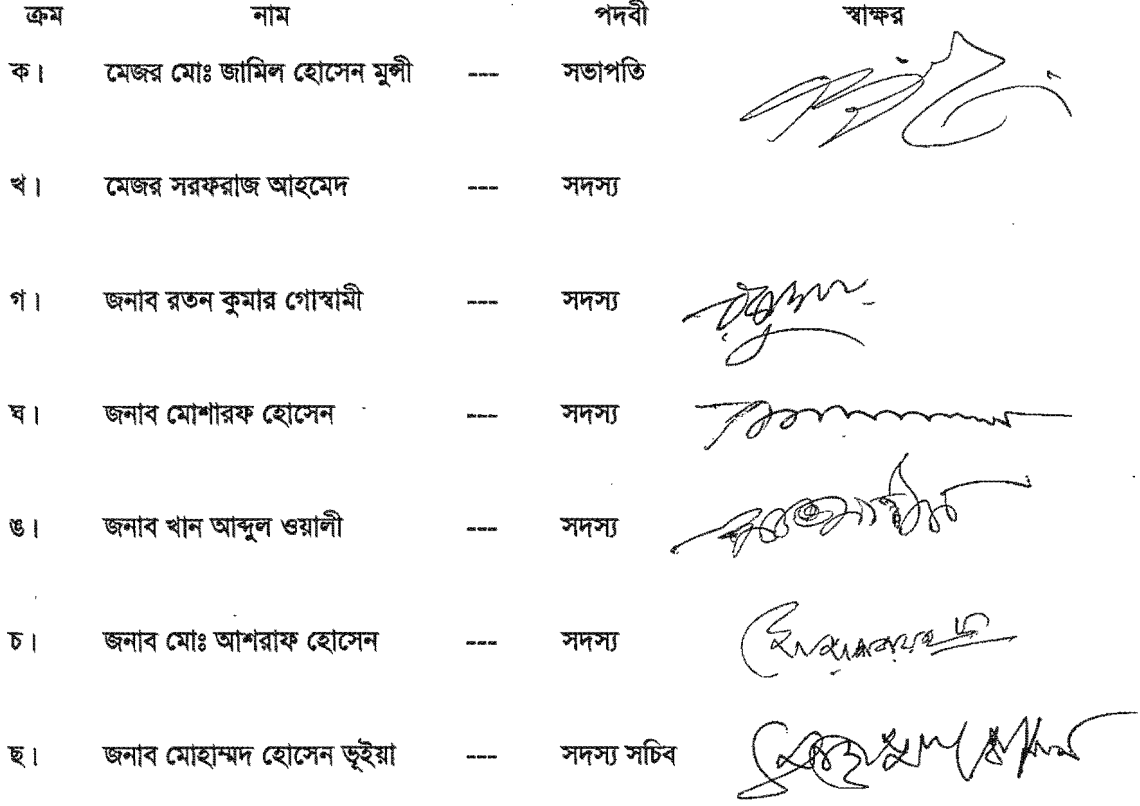 ক্রম নাম পদবী স্বাক্ষর
ক। মেজর মোঃ জামিল হোসেন মুন্সী --- সভাপতি
খ। মেজর সরফরাজ আহমেদ --- সদস্য
গ। জনাব রতন কুমার গোস্বামী --- সদস্য
ঘ। জনাব মোশারফ হোসেন --- সদস্য
ঙ। জনাব খান আব্দুল ওয়ালী --- সদস্য
চ। জনাব মোঃ আশরাফ হোসেন --- সদস্য
ছ। জনাব মোহাম্মদ হোসেন ভূইয়া --- সদস্য সচিব